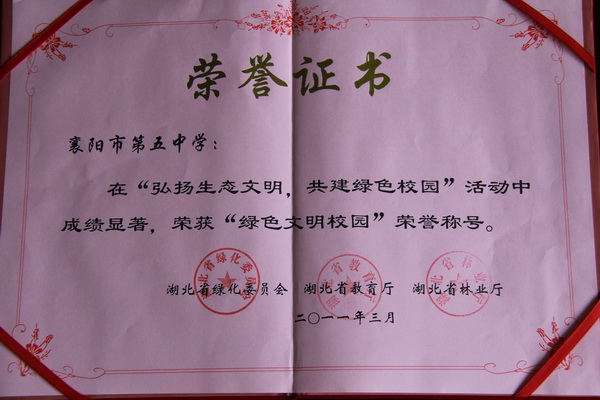 荣誉证书
襄阳市第五中学：
在“弘扬生态文明，共建绿色校园”活动中
成绩显著，荣获“绿色文明校园”荣誉称号。
湖北省绿化委员会 湖北省教育厅 湖北省林业厅
二〇一一年三月